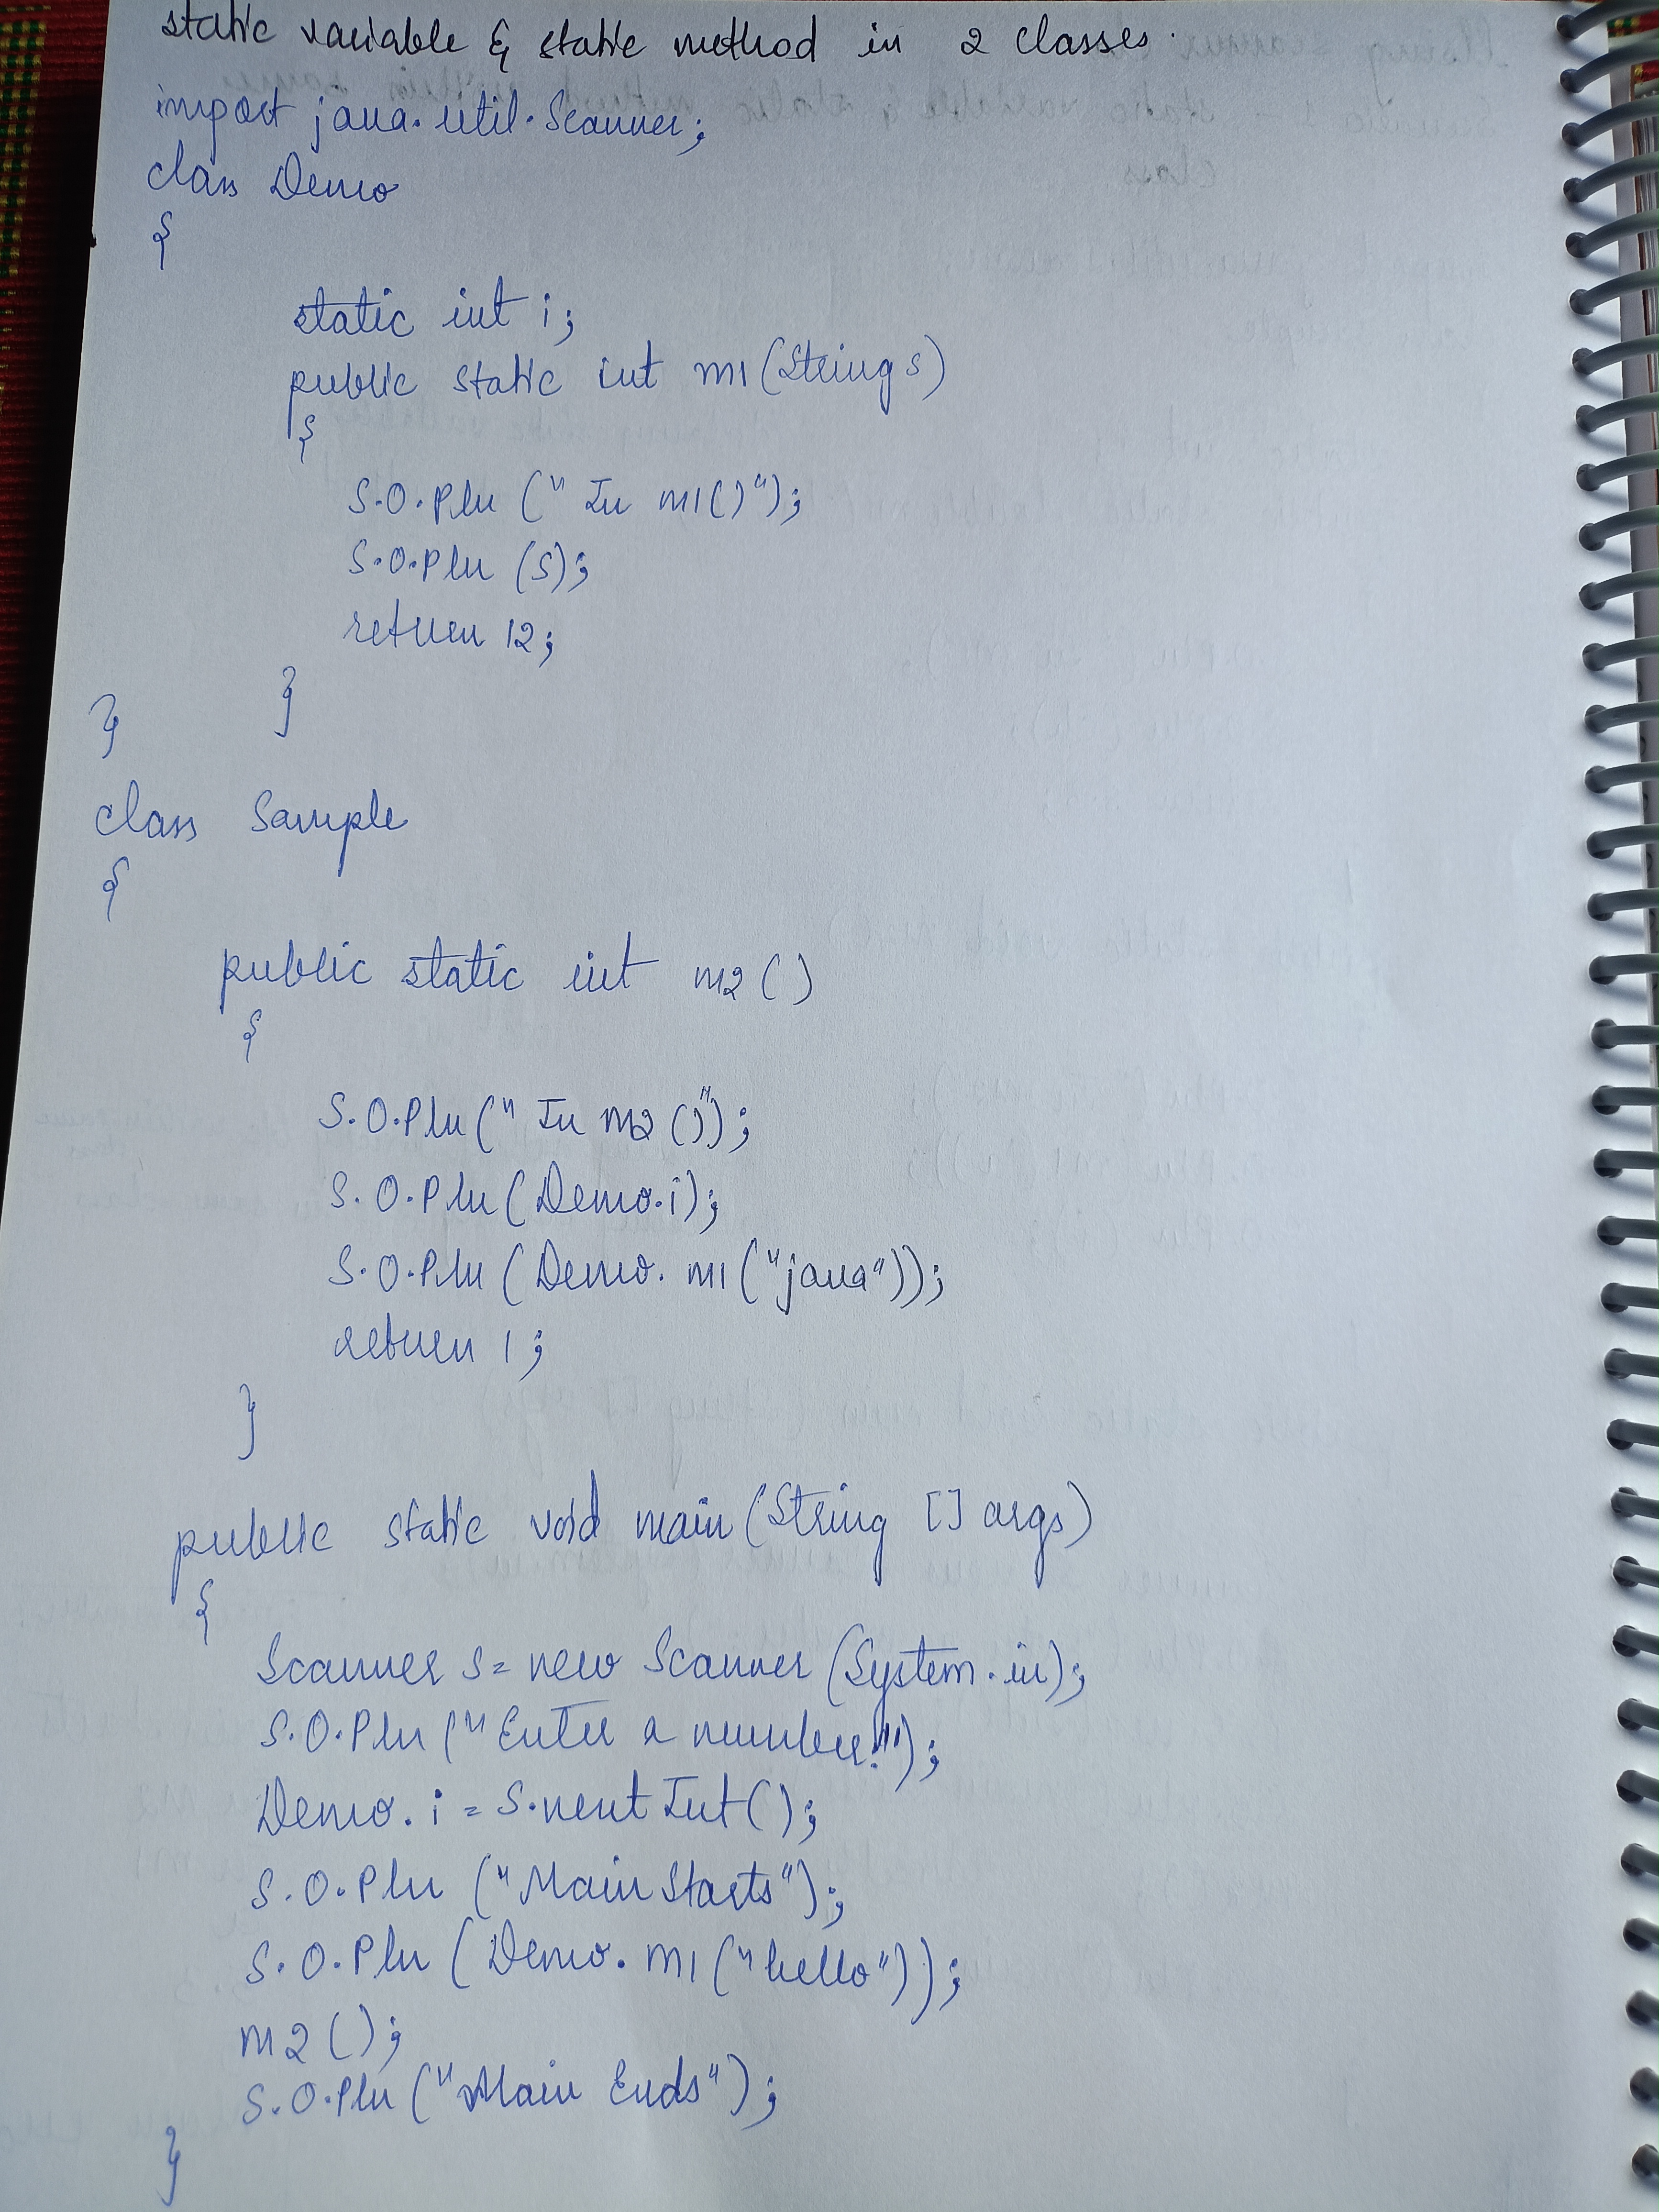 static variable & static method in 2 classes.
import java.util.Scanner;
class Demo
{
static int i;
public static int m1(String s)
{
S.O.Pln (" In m1()");
S.O.Pln (s);
return 12;
}
}
class Sample
{
public static int m2 ()
{
S.O.Pln (" In m2 ()");
S.O.Pln (Demo.i);
S.O.Pln (Demo. m1 ("java"));
return 1;
}
public static void main (String [] args)
{
Scanner s= new Scanner (System.in);
S.O.Pln ("Enter a number!");
Demo. i = s.nextInt();
S.O.Pln ("Main Starts");
S.O.Pln (Demo. m1 ("hello"));
m2 ();
S.O.Pln ("Main Ends");
}